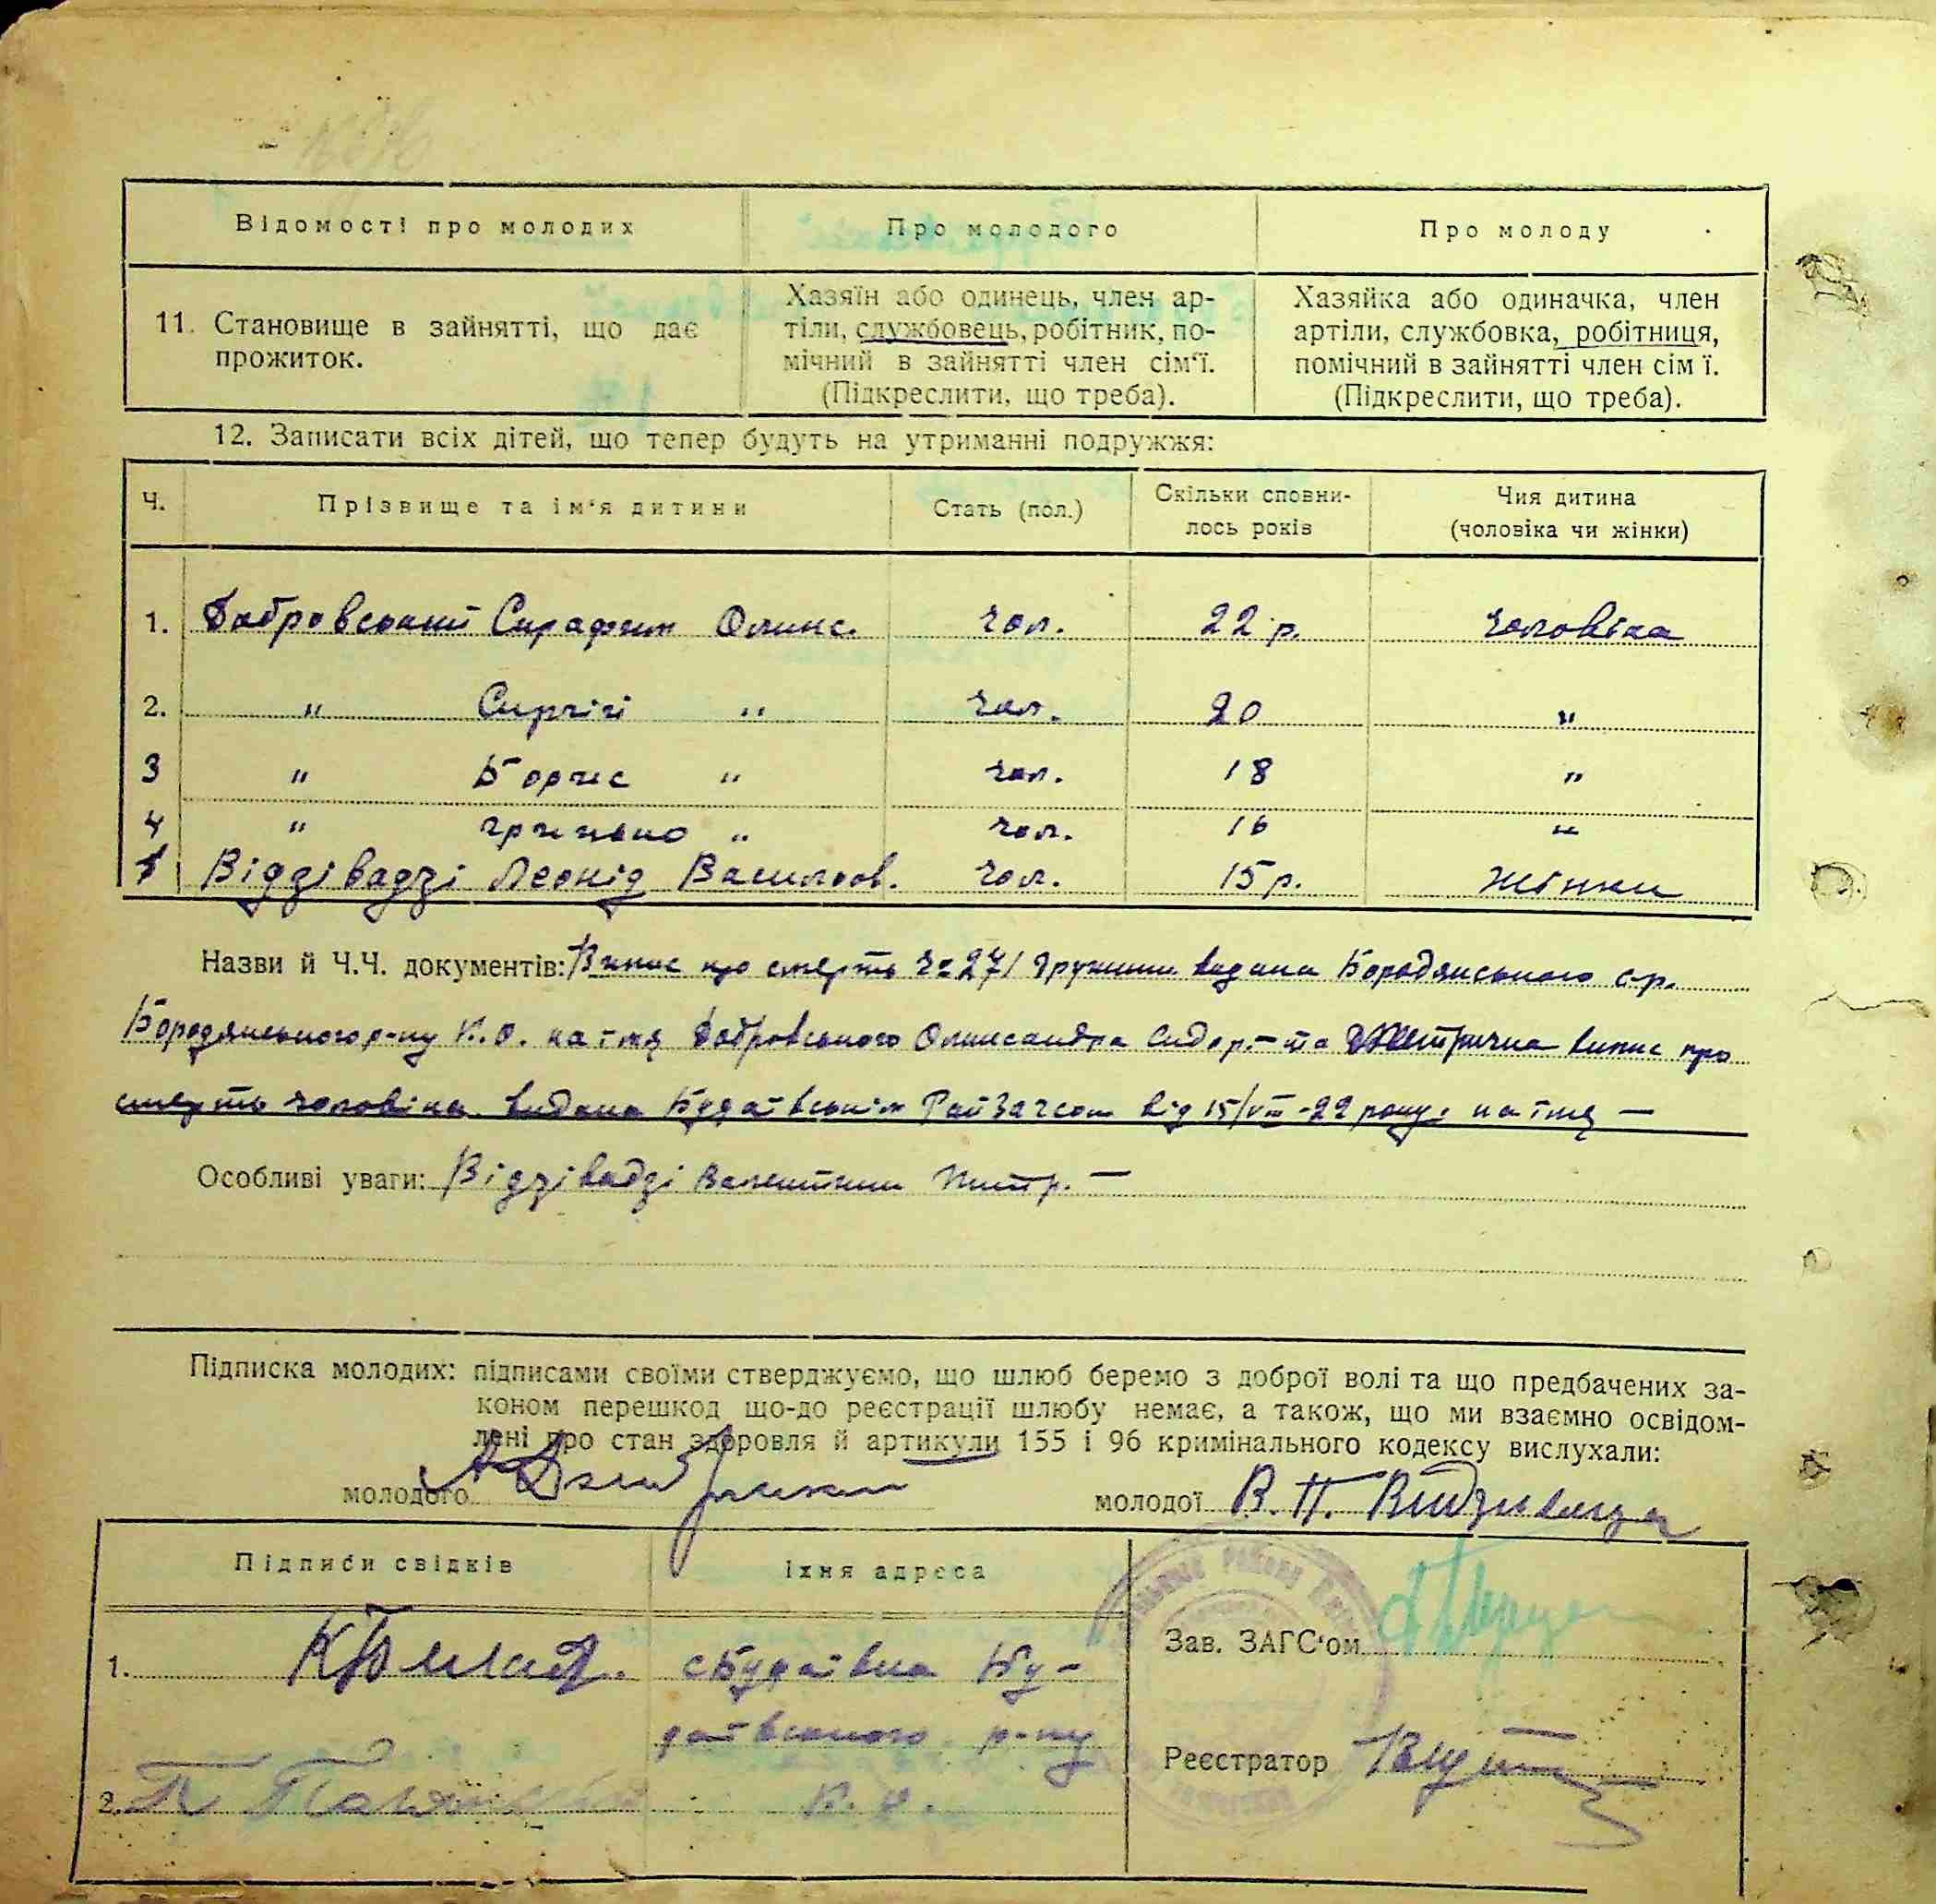 Відомості про молодих Про молодого Про молоду
11. Становище в зайнятті, що дає прожиток.
Хазяїн або одинець, член ар-
тіли, службовець, робітник, по-
мічний в зайнятті член сім'ї.
(Підкреслити, що треба).
Хазяйка або одиначка, член
артіли, службовка, робітниця,
помічний в зайнятті член сім ї.
(Підкреслити, що треба).
12. Записати всіх дітей, що тепер будуть на утриманні подружжя:
Ч. Прізвище та ім'я дитини Стать (пол.) Скільки сповни-
лось років Чия дитина
(чоловіка чи жінки)
1. Добровський Сирафим Оликс. чол. 22 р. чоловіка
2. " Сиргій " чол. 20 "
3 " Борис " чол. 18 "
4 " " чол. 16 "
Відзівадзі Леонід Васильов. чол. 15 р. жінки
Назви й Ч.Ч. документів: Випис про смерть дружини видана Бородянського с.р.
Бородянського р-ну К.О. на імя Добровського Олександра Сидор. – та випис про
смерть чоловіка видана Будаївським РайЗагсом від 15/VIII-22 року. на імя —
Особливі уваги: Відзівадзі Валентини Питр. —
Підписка молодих: підписами своїми стверджуємо, що шлюб беремо з доброї волі та що предбачених за-
коном перешкод що-до реєстрації шлюбу немає, а також, що ми взаємно освідом-
лені про стан здоровля й артикули 155 і 96 кримінального кодексу вислухали:
молодого молодої В. П.
Підписи свідків Їхня адреса
1. с Будаївка Бу-
даївського р-ну
2. К. О.
Зав. ЗАГС'ом
Реєстратор